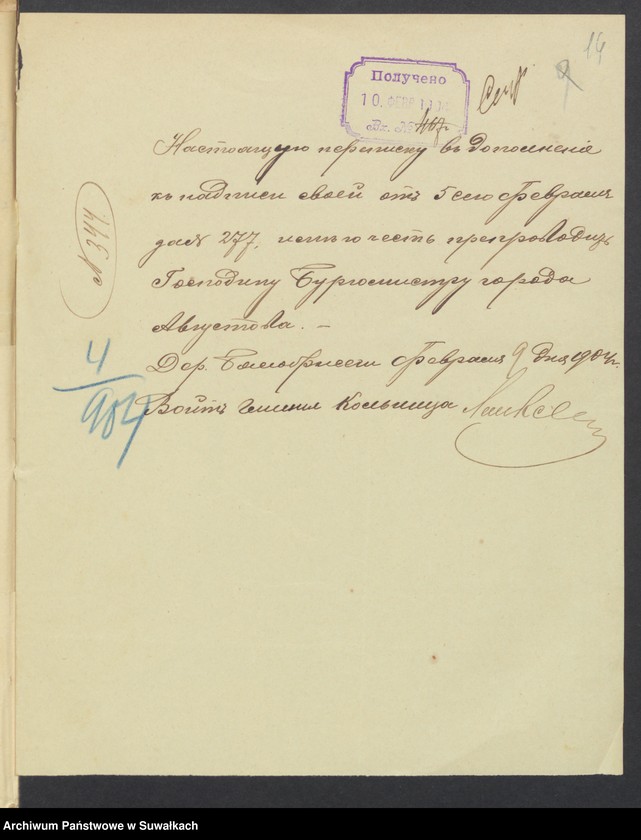 14
Получено
10. ФЕВР 1904
Вх. №
№ 344.
Настоящую переписку въ дополненіе
къ надписи своей отъ 5 сего Февраля
за № 277, имѣю честь препроводить
Господину Бургомистру города
Августова. —
Дер. Бялобржеги Февраля 9 дня 1904 г.
Войтъ гмины Кольница
4
904
Archiwum Państwowe w Suwałkach